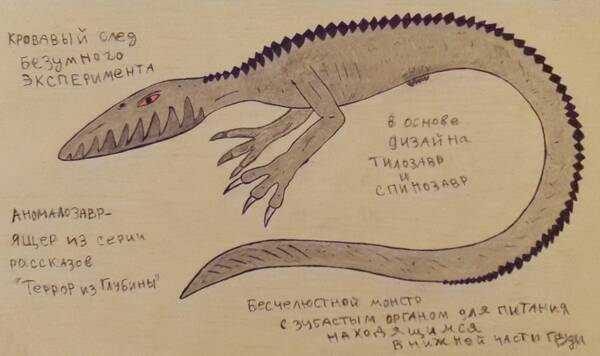 Кровавый след
безумного
эксперимента
в основе
дизайна
тилозавр
и
спинозавр
Аномалозавр-
ящер из серии
рассказов
"Террор из Глубины"
Бесчелюстной монстр
с зубастым органом для питания
находящимся
в нижней части груди